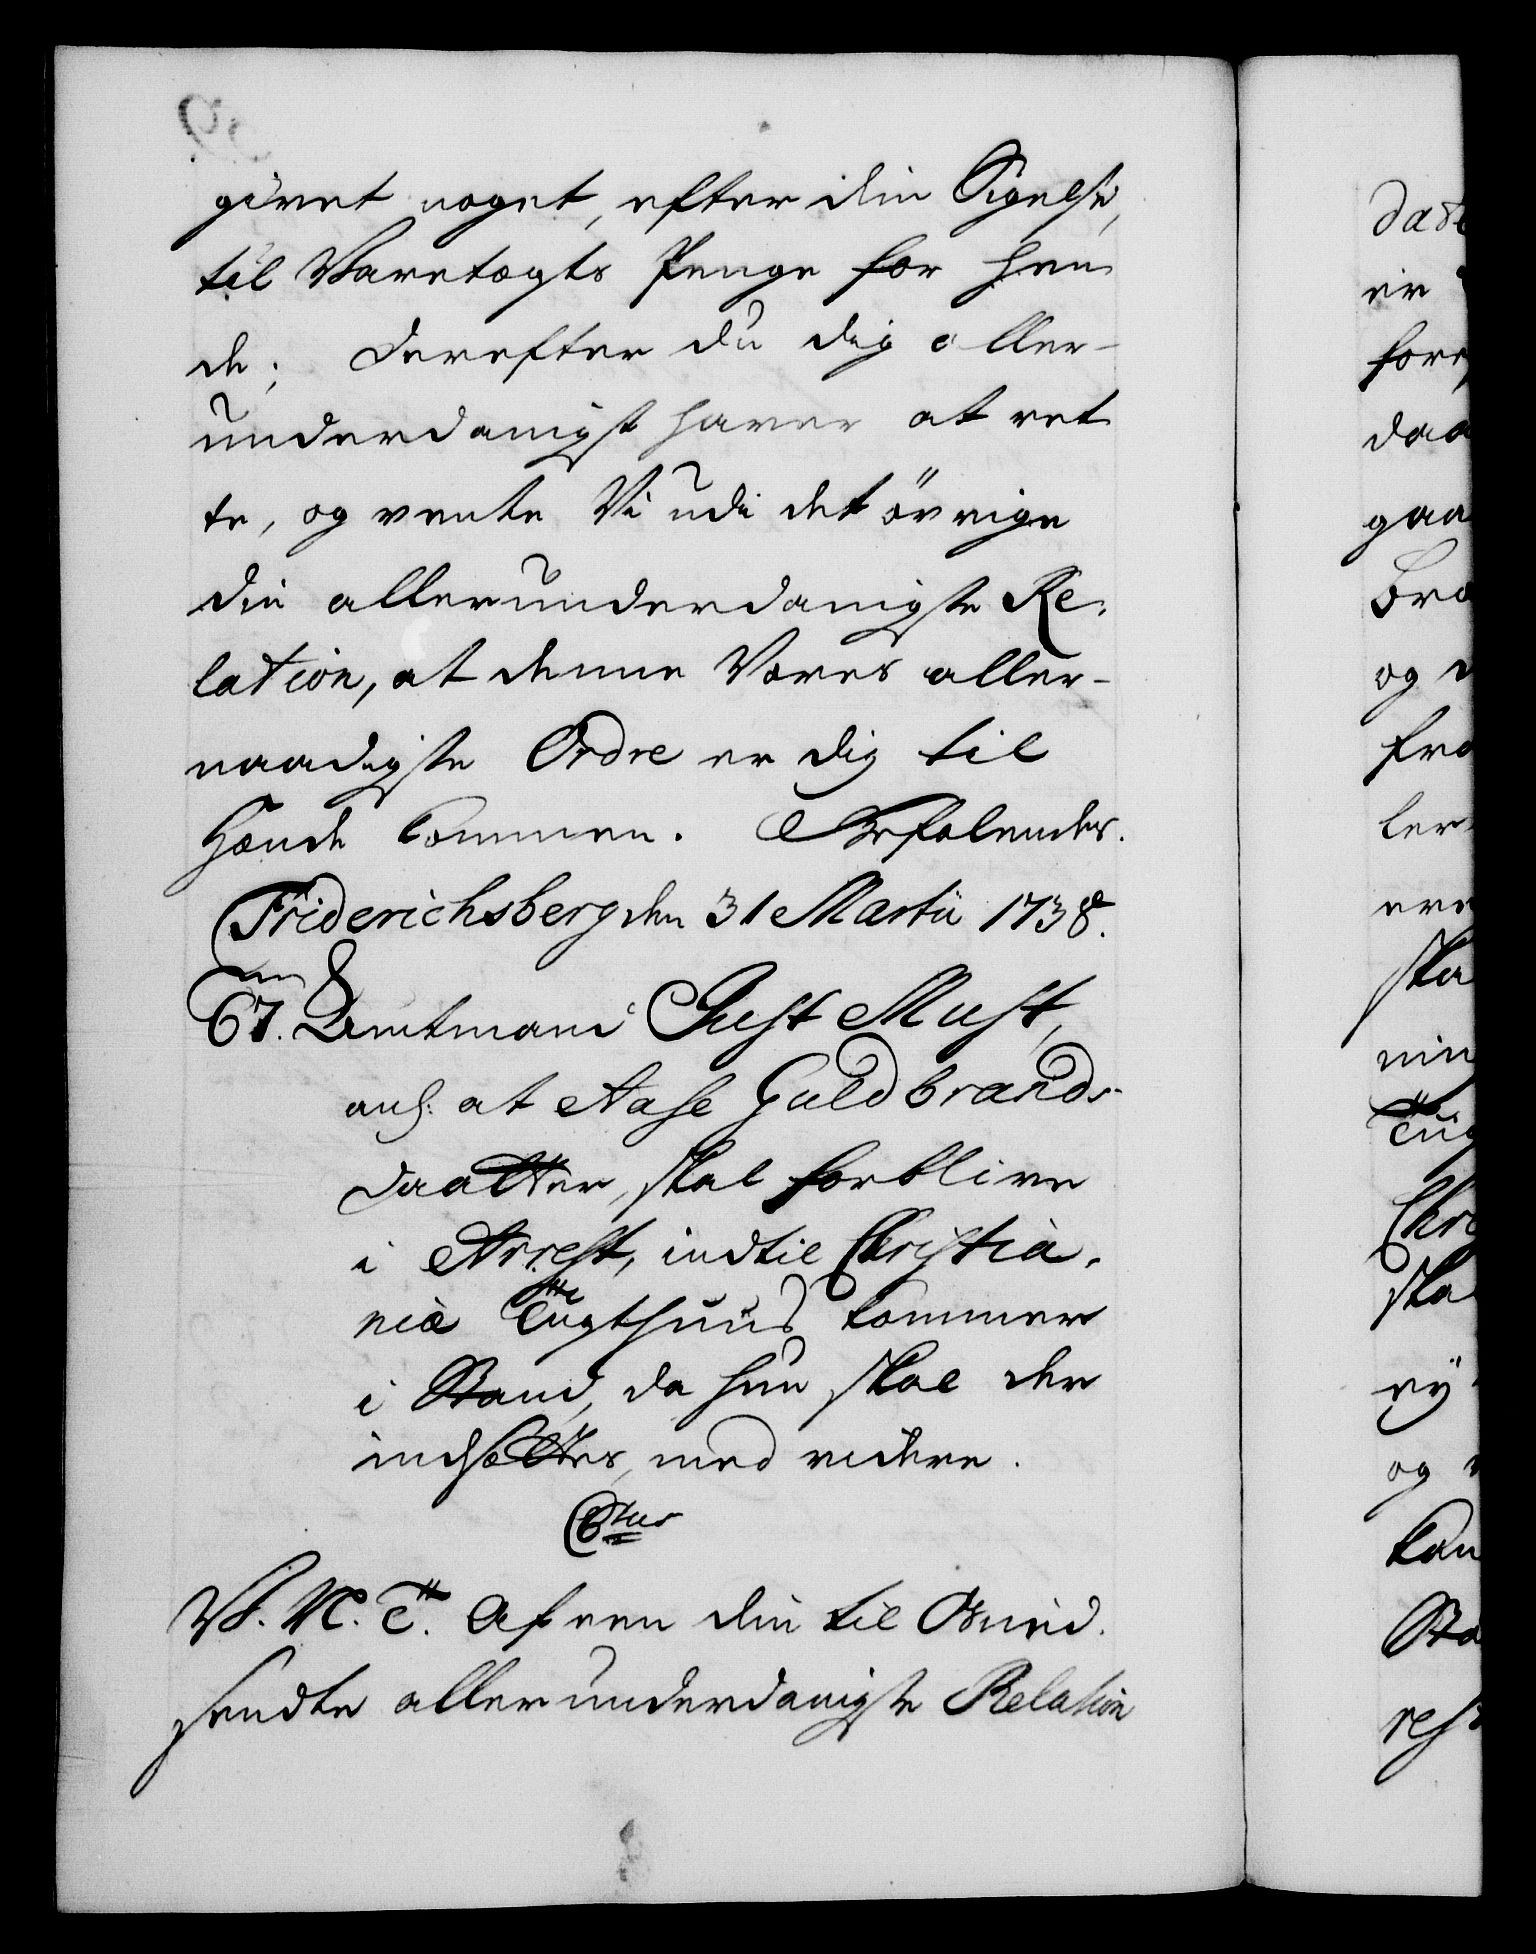 givet noget, efter din Sigelse,
til Varetægts Penge for hen
de; Derefter du dig aller-
underdanigst haver at ret
te, og vente Vi udi det övrige
din allerunderdanigste Re-
lation, at denne Vores aller-
naadigste Ordre er dig til
Hænde kommen. Befalendes.
Friderichsberg den 31 Martii 1738.
67. Amtmand Just Must,
anl: at Aase Guldbrands-
daatter, skal forblive
i Arrest, indtil Christia-
niæ Tugthuus kommer
i Stand, da hun skal der
indsættes, med videre.
C 6tus
V. G. T. Af een din til Os ind-
sendte allerunderdanigste Relation
das
er
for
daa
gaa
Bro
og
fra
ler
ere
ska
nin
Tug
Chri
ska
ey
og
kan
Sta
rest